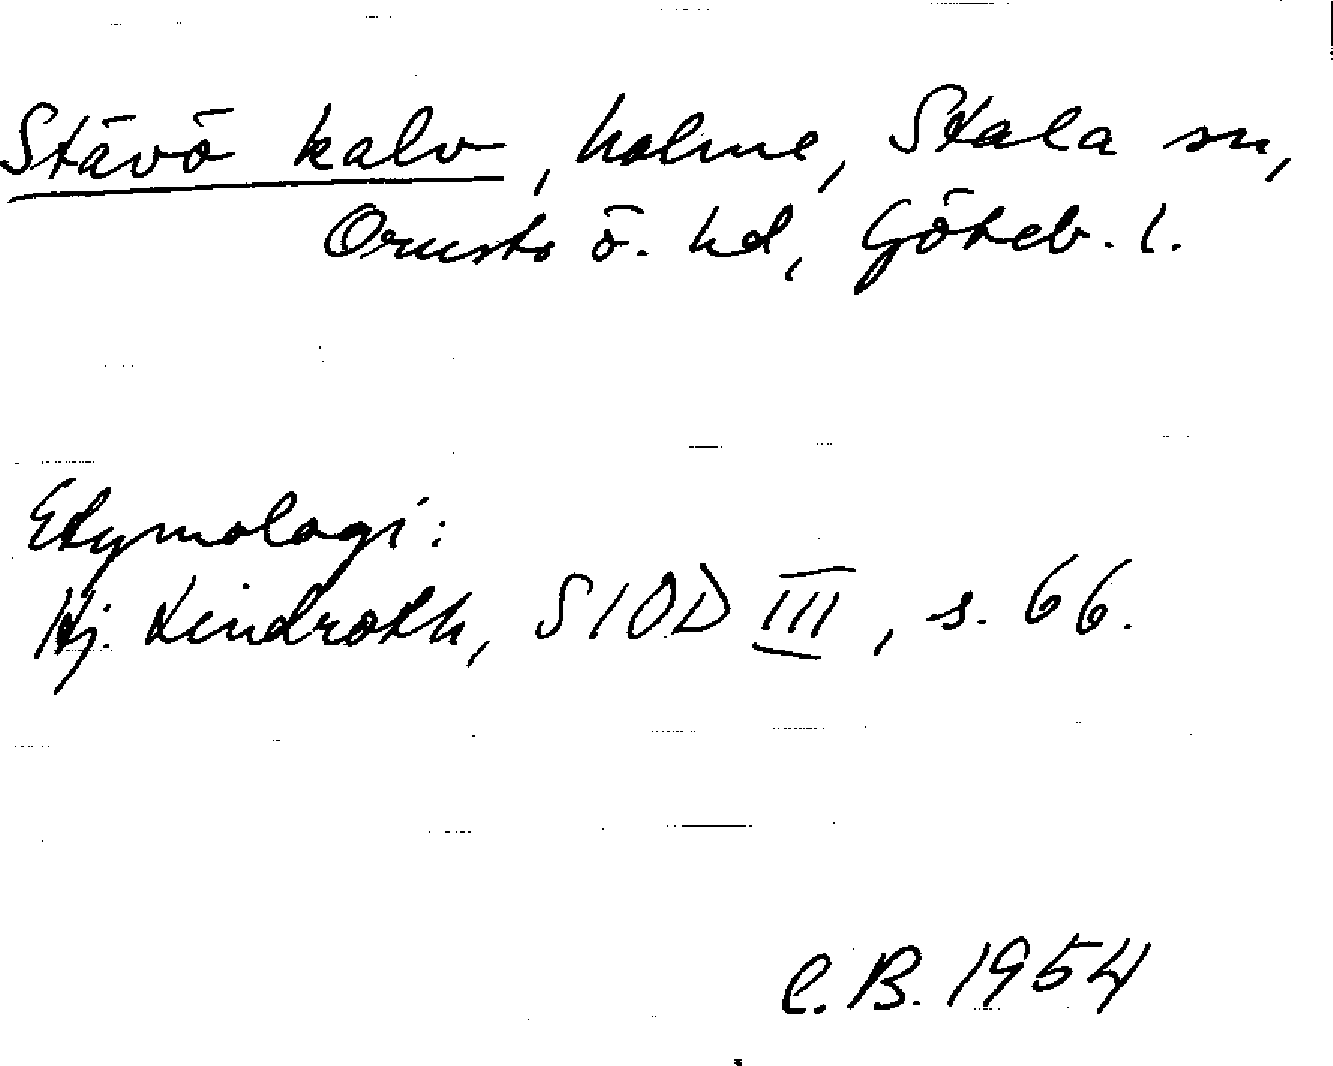 Stävö kalv, holme, Stala sn,
Orusts ö. hd, Göteb. l.
Etymologi:
Hj. Lindroth, SIOD III, s. 66.
C.B. 1954